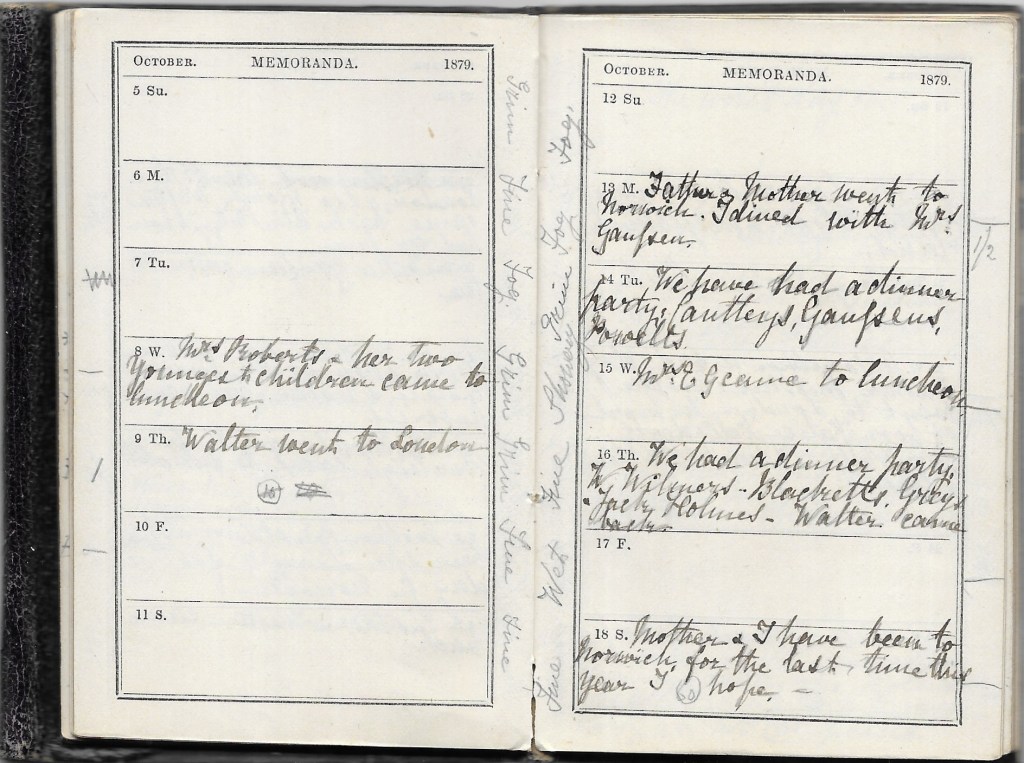 OCTOBER. MEMORANDA. 1879.
5 Su.
6 M.
7 Tu.
8 W. Mrs Roberts & her two
Youngest children came to
luncheon.
9 Th. Walter went to London
10 F.
11 S.
Grim Fine Fog. Grim Grim Fine Fine
Fine Wet Fine Showery Grim Fog Fog.
OCTOBER. MEMORANDA. 1879.
12 Su
13 M. Father & Mother went to
Norwich. I dined with Mrs
Gaussen.
1/2
14 Tu. We have had a dinner
party; Cautleys, Gaussens,
Powells.
15 W. Mr E G came to luncheon
16 Th. We had a dinner party.
W Wilmers - Blacketts, Greys
Jack Holmes - Walter came
back.
17 F.
18 S. Mother & I have been to
Norwich, for the last time this
year I hope. -